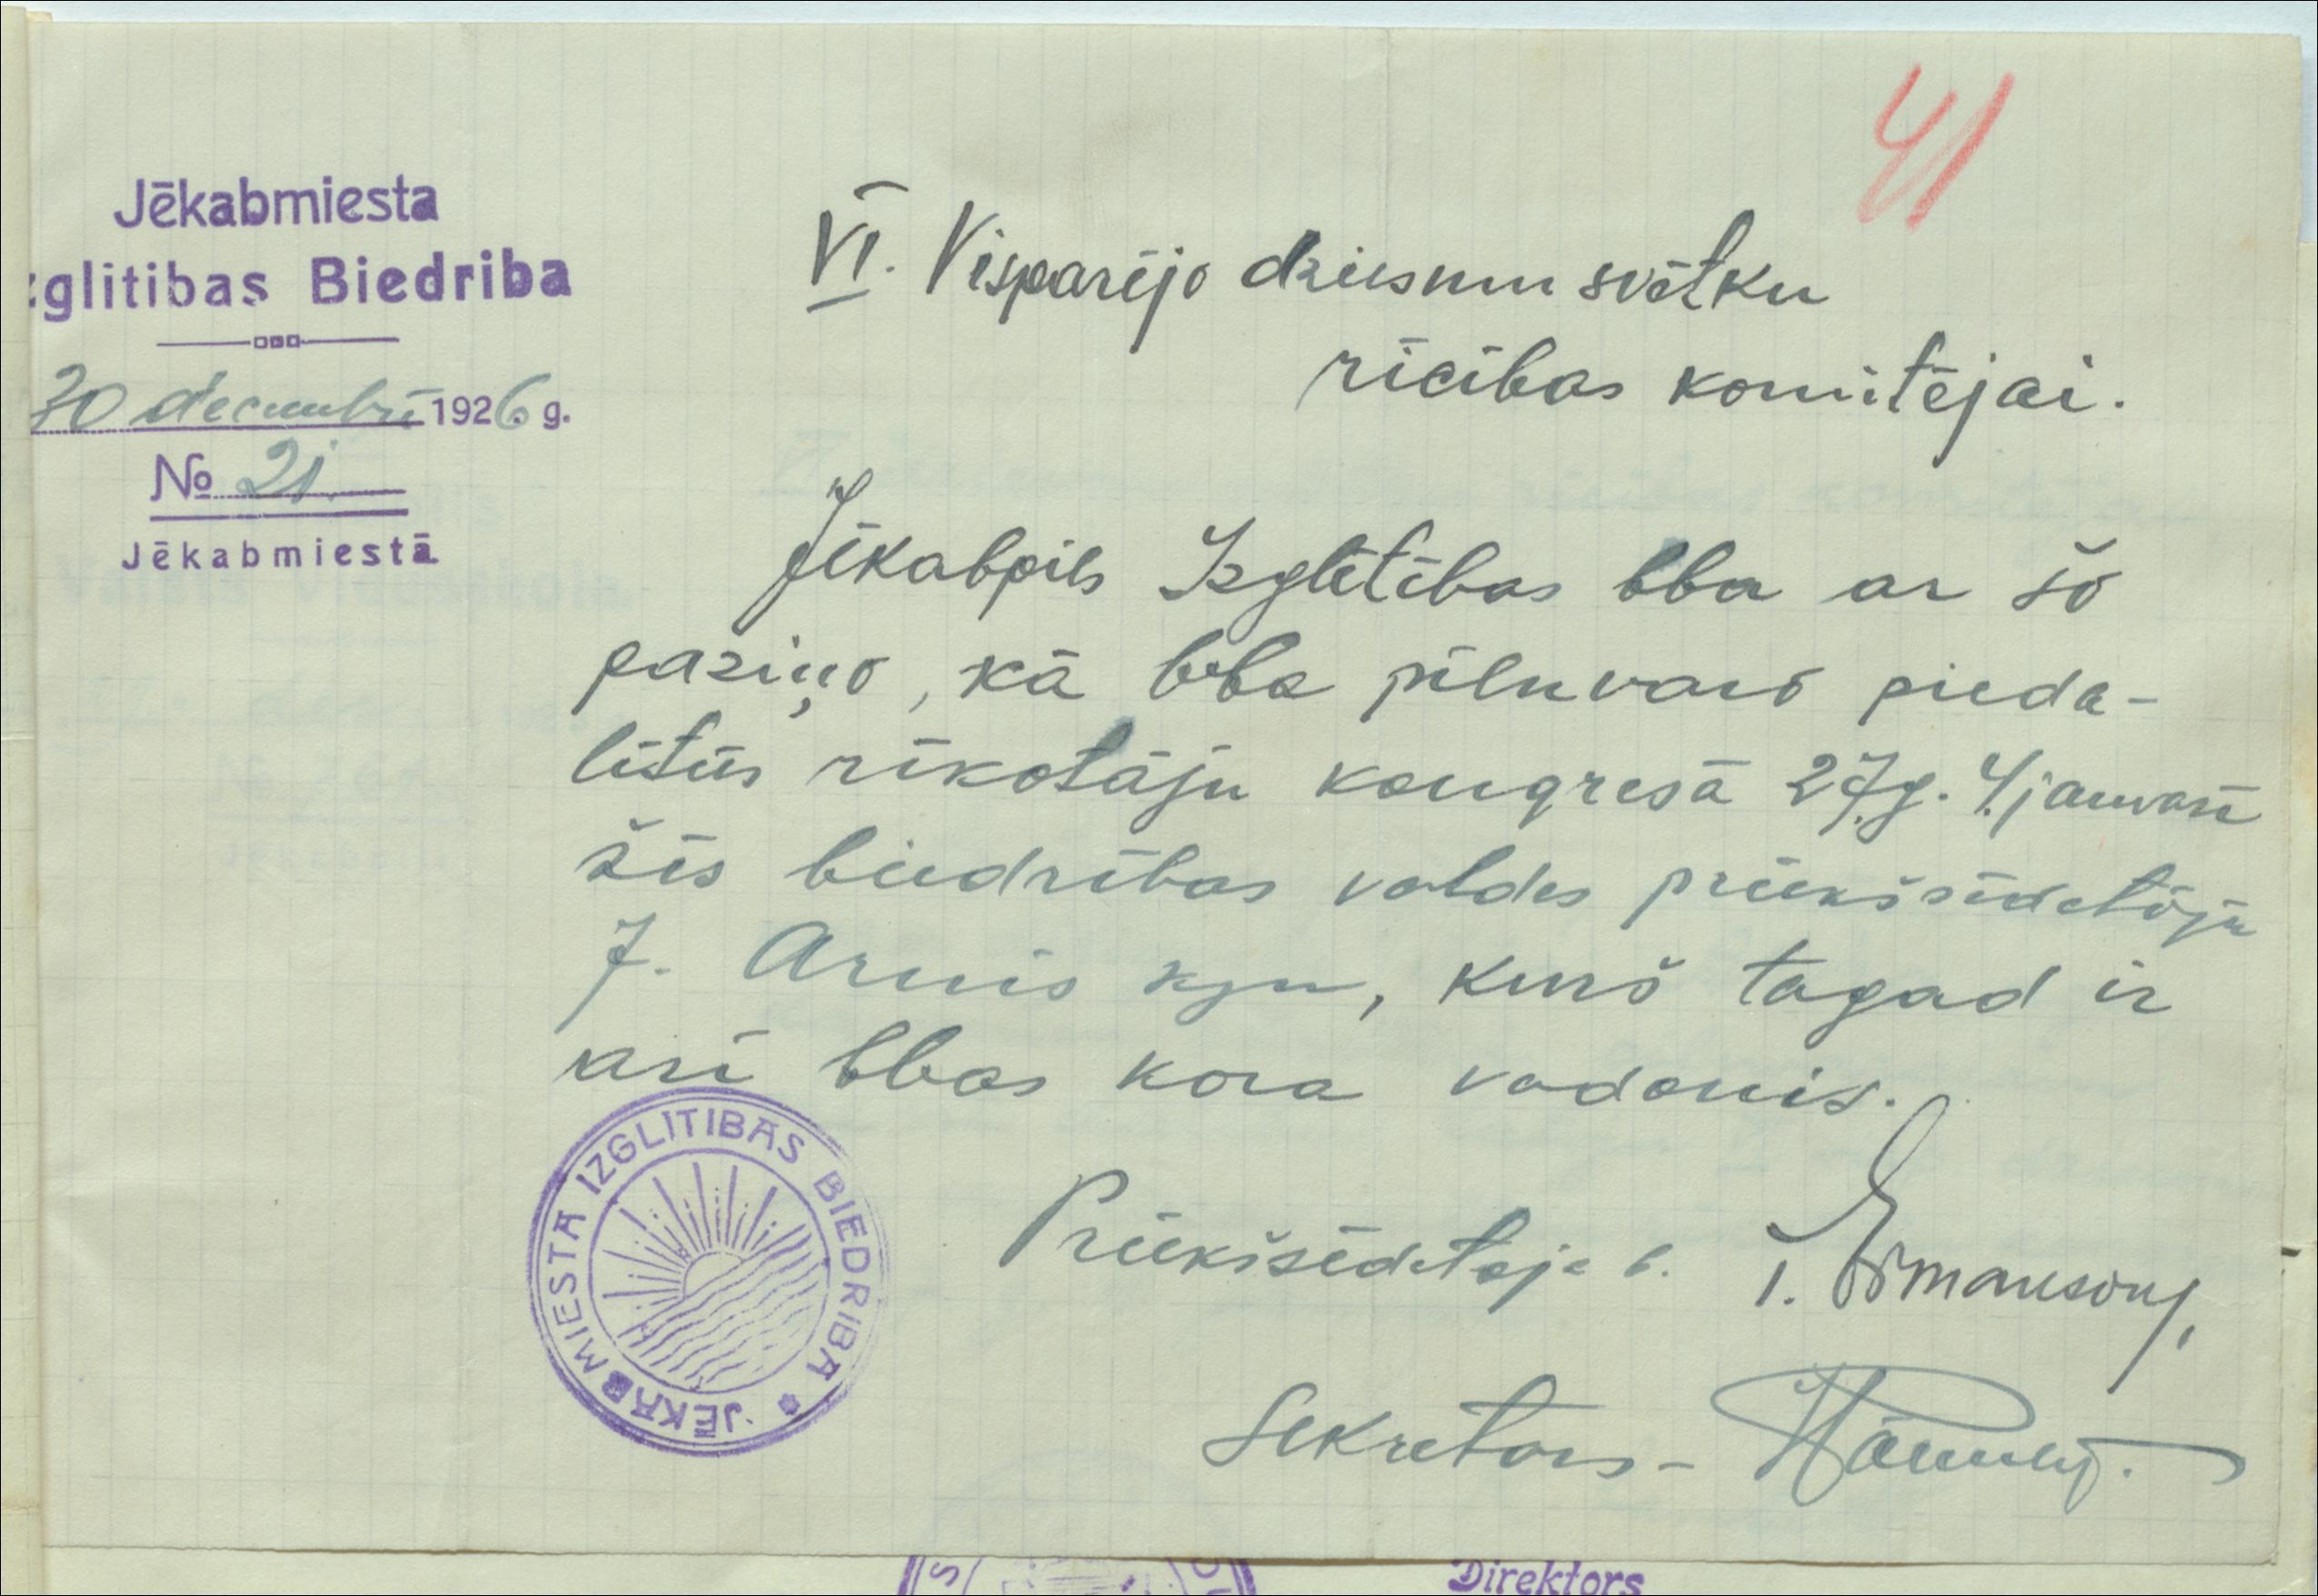 41
Jēkabmiesta
zglitibas Biedriba
30 decembrī 1926. g.
No 21.
Jēkabmiestā
VI. Vispārējo dziesmu svētku
rīcības komitējai.
Jēkabpils Izglītības bba ar šo
paziņo, kā bba pilnvaro pieda-
lītiēs rīkotāju kongresā 27.g. 4. janvarī
šīs biedrības valdes priekšsēdetāju
J. Arnis kgu, kurš tagad ir
arī bbas kora vadonis.
Priekšsēdetaja b.
Sekretars -
JĒKABMIESTA IZGLITIBAS BIEDRIBA
Direktors